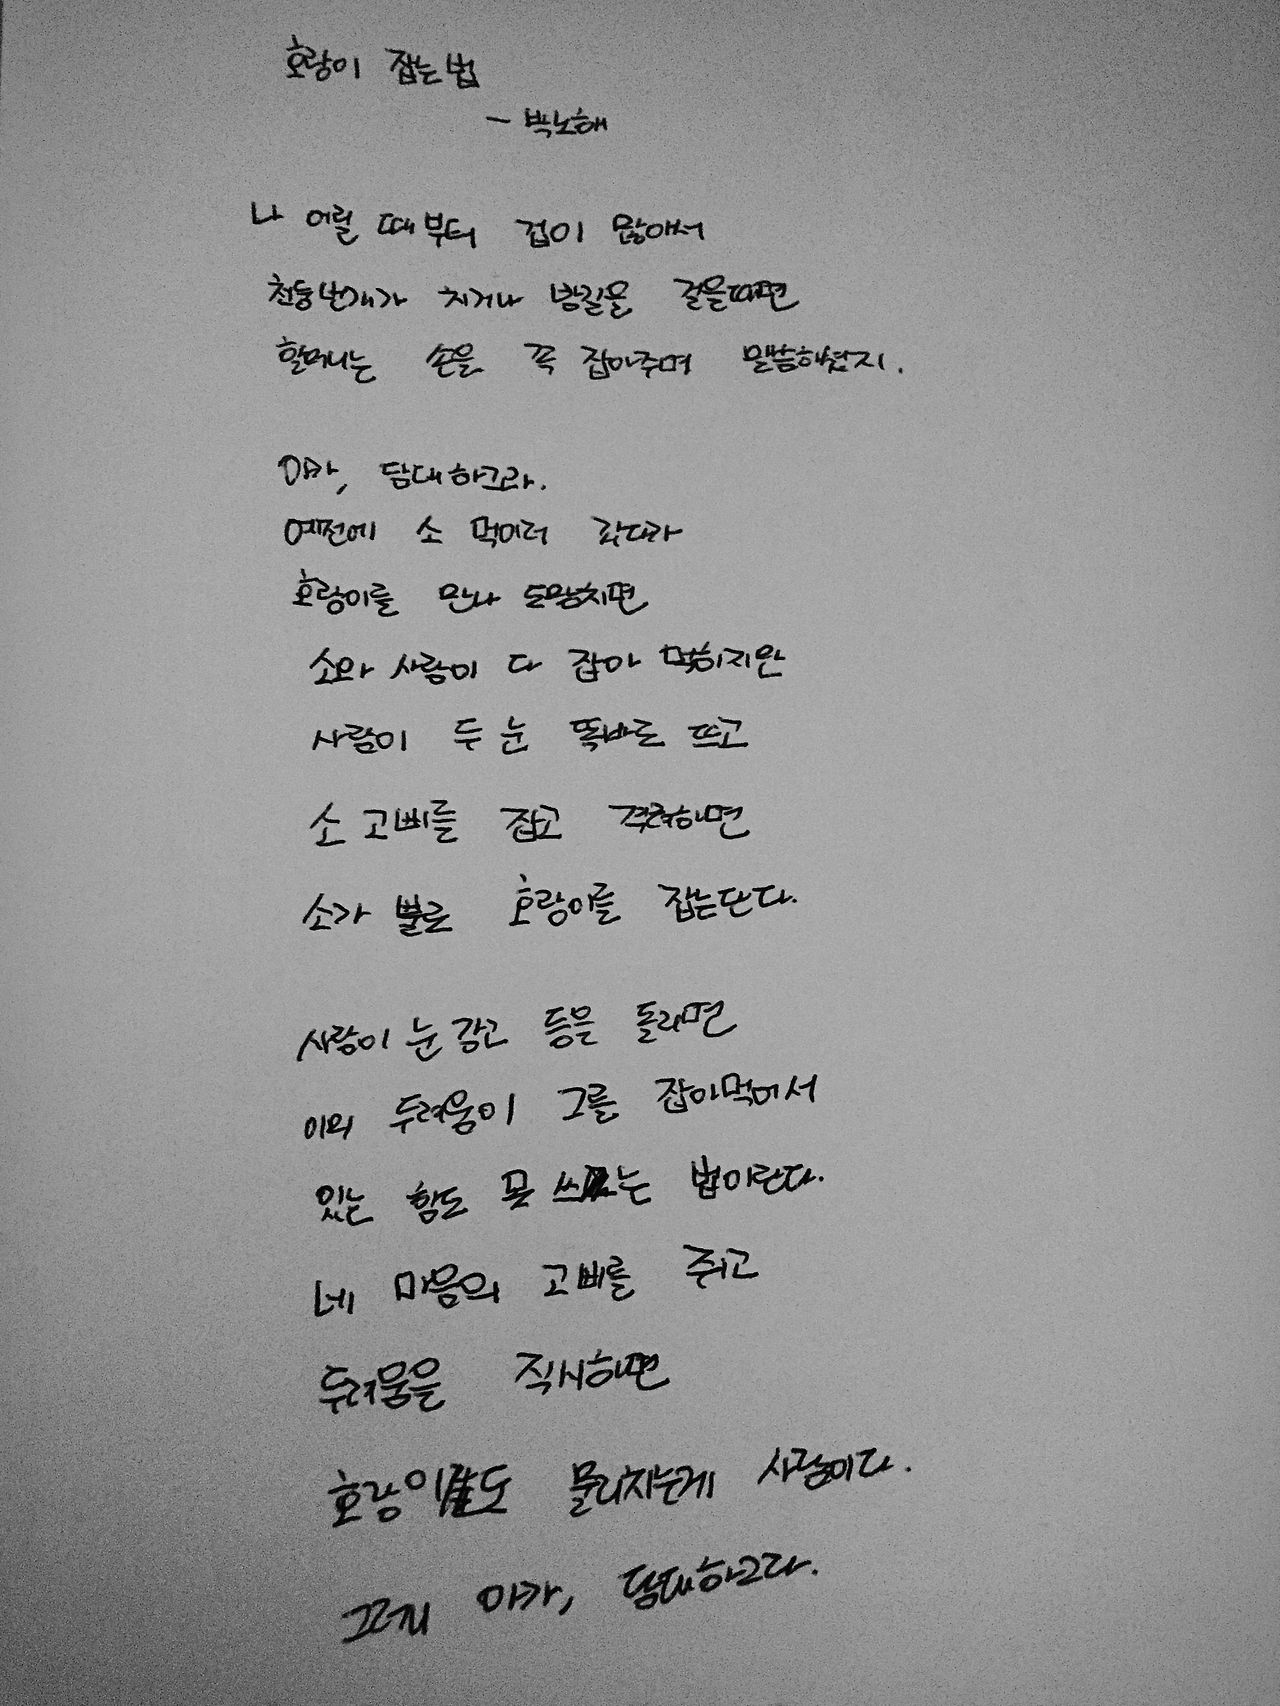 호랑이 잡는 법
- 박노해
나 어릴 때부터 겁이 많아서
천둥번개가 치거나 밤길을 걸을때면
할머니는 손을 꼭 잡아주며 말씀하셨지.
아가, 담대하그라.
예전에 소 먹이러 갔다가
호랑이를 만나 도망치면
소와 사람이 다 잡아 먹히지만
사람이 두 눈 똑바로 뜨고
소 고삐를 잡고 격려하면
소가 뿔로 호랑이를 잡는단다.
사람이 눈감고 등을 돌리면
이미 두려움이 그를 잡아먹어서
있는 힘도 못 쓰는 법이란다.
네 마음의 고삐를 쥐고
두려움을 직시하면
호랑이도 물리치는게 사람이다.
그러니 아가, 담대하그라.